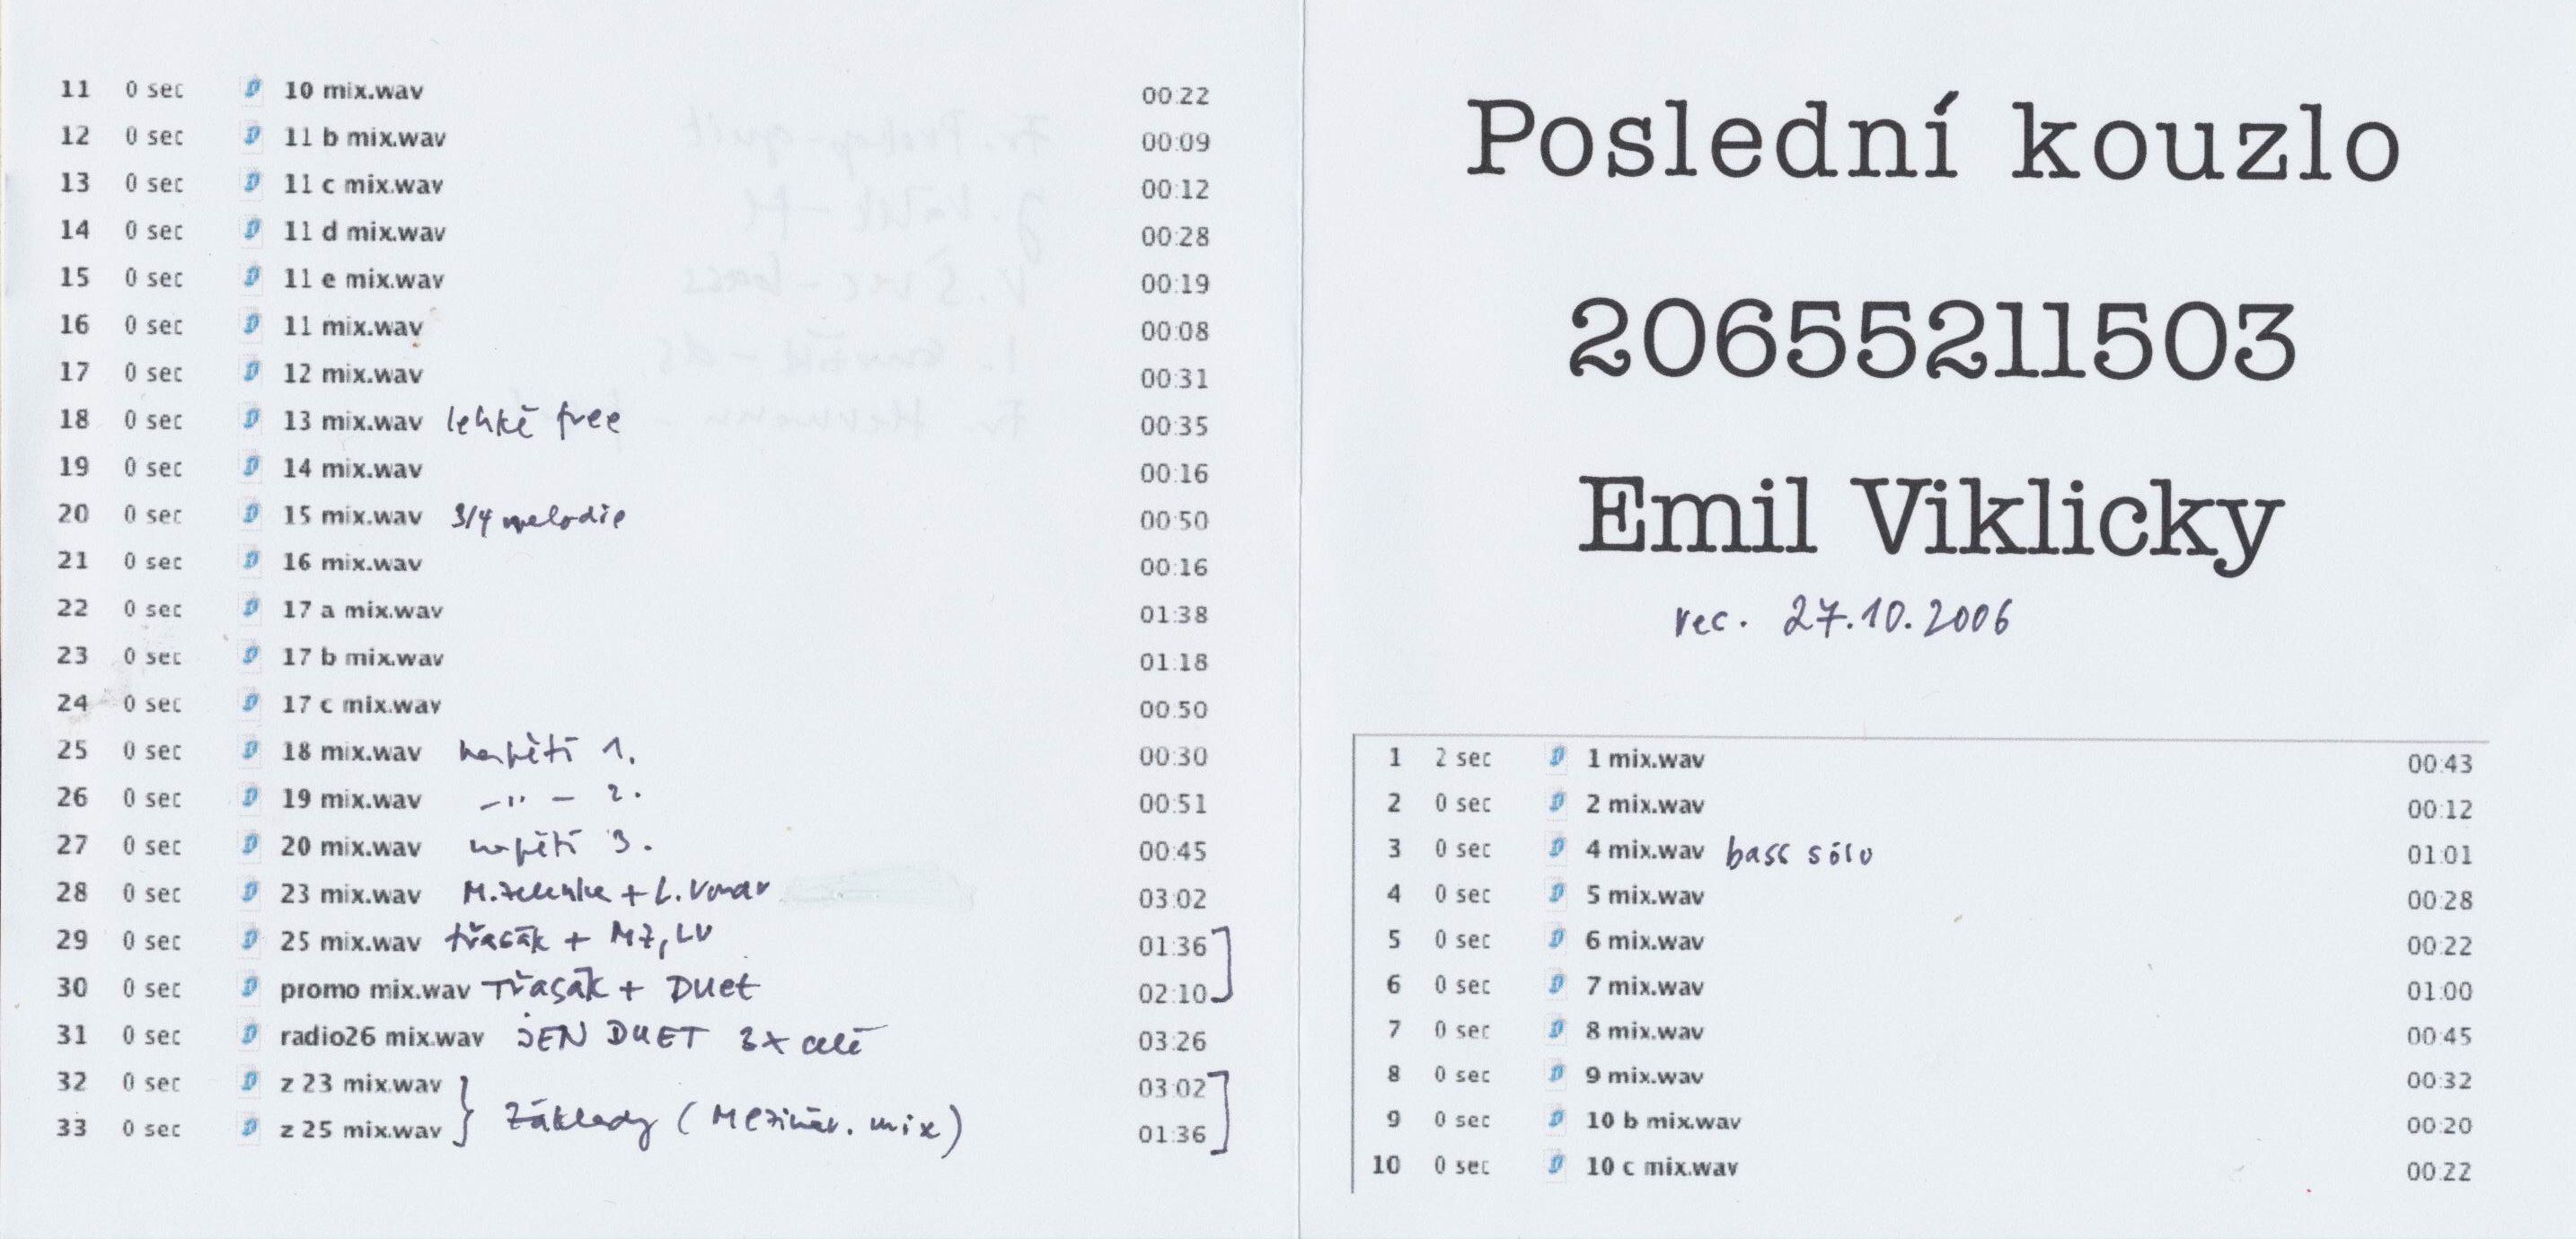 11 0 sec 10 mix.wav 00:22
12 0 sec 11 b mix.wav 00:09
13 0 sec 11 c mix.wav 00:12
14 0 sec 11 d mix.wav 00:28
15 0 sec 11 e mix.wav 00:19
16 0 sec 11 mix.wav 00:08
17 0 sec 12 mix.wav 00:31
18 0 sec 13 mix.wav lehké free 00:35
19 0 sec 14 mix.wav 00:16
20 0 sec 15 mix.wav 3/4 melodie 00:50
21 0 sec 16 mix.wav 00:16
22 0 sec 17 a mix.wav 01:38
23 0 sec 17 b mix.wav 01:18
24 0 sec 17 c mix.wav 00:50
25 0 sec 18 mix.wav napětí 1. 00:30
26 0 sec 19 mix.wav –"– 2. 00:51
27 0 sec 20 mix.wav napětí 3. 00:45
28 0 sec 23 mix.wav M. Zelenka + L. 03:02
29 0 sec 25 mix.wav třasák + MZ, LV 01:36
30 0 sec promo mix.wav Třasák + DUet 02:10
31 0 sec radio26 mix.wav JEN DUET 3x celé 03:26
32 0 sec z 23 mix.wav 03:02
33 0 sec z 25 mix.wav 01:36
Základy (Mezinár. mix)
Poslední kouzlo
20655211503
Emil Viklicky
rec. 27.10.2006
1 2 sec 1 mix.wav 00:43
2 0 sec 2 mix.wav 00:12
3 0 sec 4 mix.wav bass sólo 01:01
4 0 sec 5 mix.wav 00:28
5 0 sec 6 mix.wav 00:22
6 0 sec 7 mix.wav 01:00
7 0 sec 8 mix.wav 00:45
8 0 sec 9 mix.wav 00:32
9 0 sec 10 b mix.wav 00:20
10 0 sec 10 c mix.wav 00:22